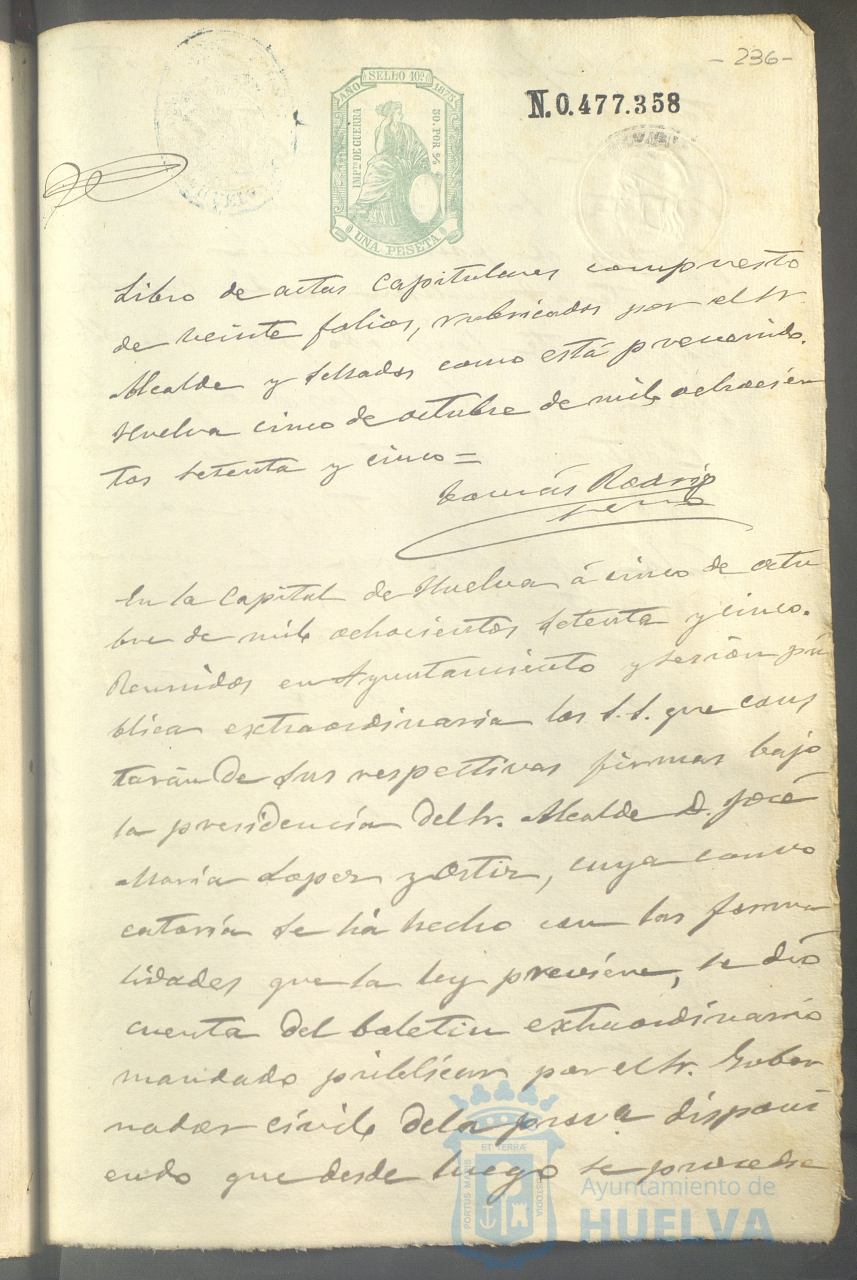 - 236 -
AÑO SELLO 10º 1875
IMPTO DE GUERRA
50 POR %
UNA PESETA
N.0.477.358
Libro de actas Capitulares compuesto
de veinte folios, rubricados por el Sr.
Alcalde y sellados como está prevenido.
Huelva cinco de octubre de mil ochocien
tos setenta y cinco=
Tomás Rodrig
En la Capital de Huelva á cinco de octu
bre de mil ochocientos setenta y cinco.
Reunidos en Ayuntamiento y sesion pú
blica extraordinaria los S.S. que cons
tarán de sus respectivas firmas bajo
la presidencia del Sr. Alcalde D. José
María Lopez y Ortiz, cuya convo
catoria se há hecho con las forma
lidades que la ley previene, se dió
cuenta del boletin extraordinario
mandado publicar por el Sr. Gober
nador civil de la prova disponi
endo que desde luego se proceda
PORTUS MARIS
ET TERRÆ
CUSTODIA
Ayuntamiento de
HUELVA